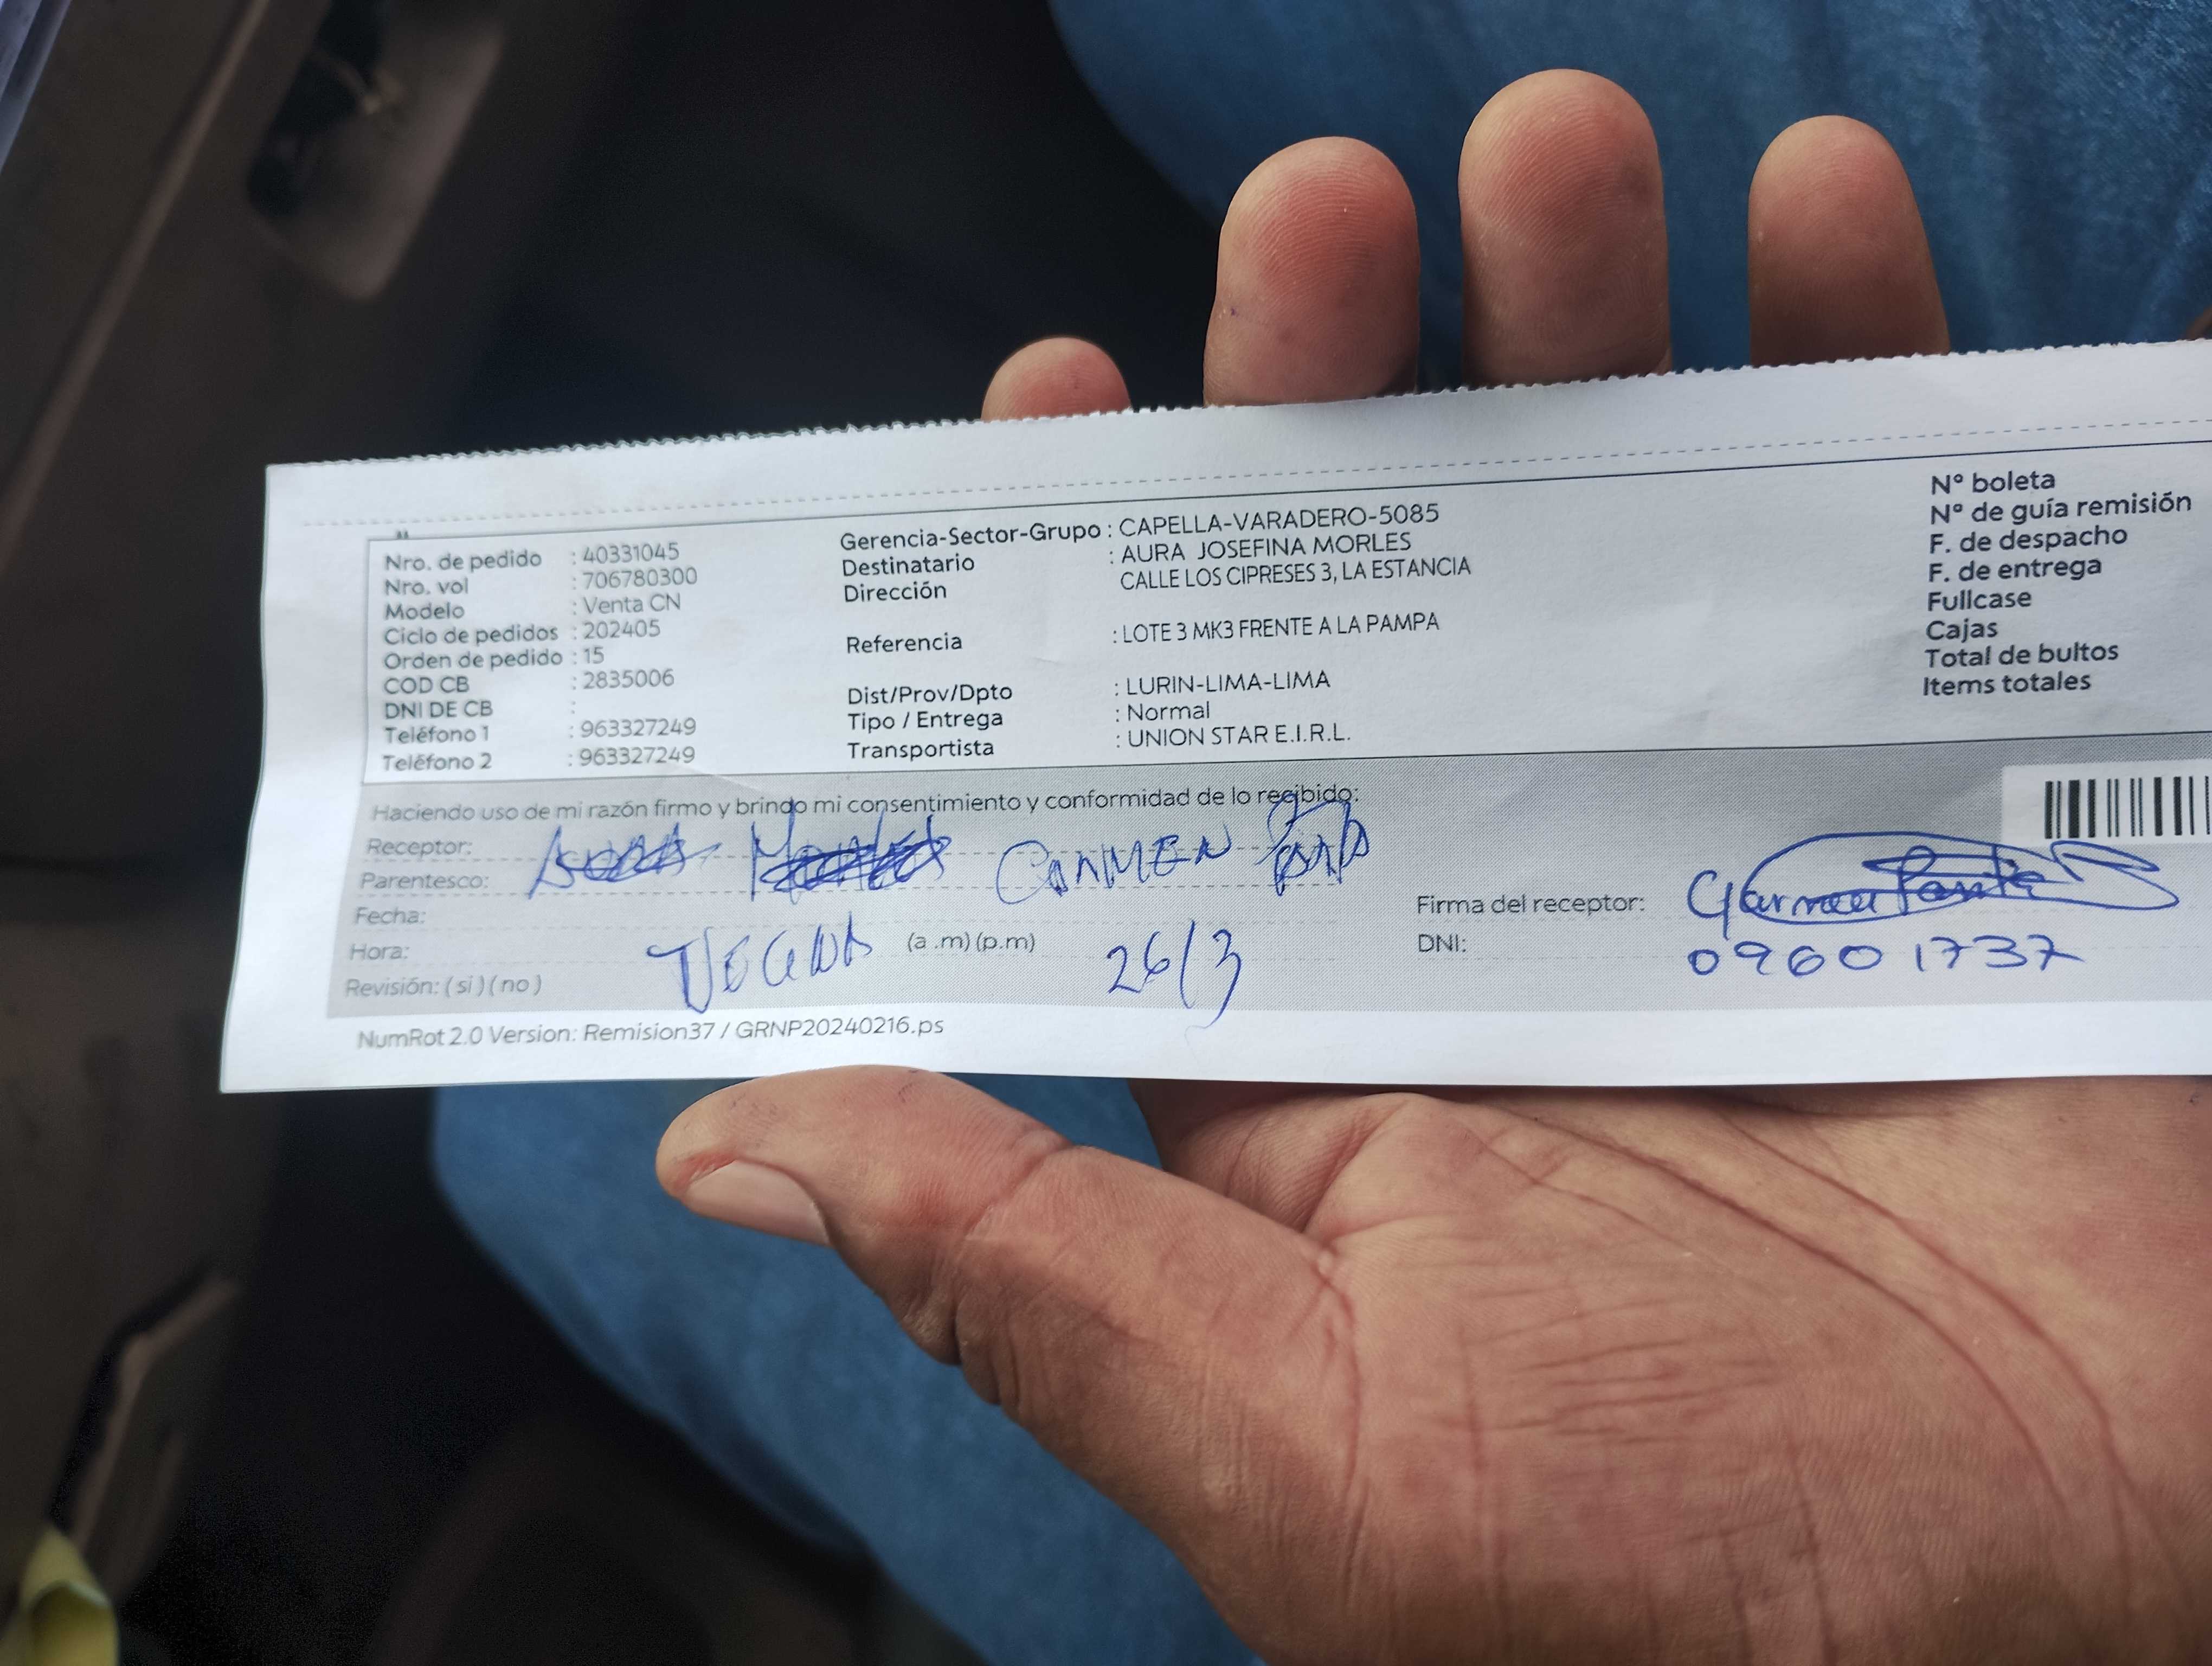 Nro. de pedido : 40331045
Nro. vol : 706780300
Modelo : Venta CN
Ciclo de pedidos : 202405
Orden de pedido : 15
COD CB : 2835006
DNI DE CB :
Teléfono 1 : 963327249
Teléfono 2 : 963327249
Gerencia-Sector-Grupo : CAPELLA-VARADERO-5085
Destinatario : AURA JOSEFINA MORLES
Dirección CALLE LOS CIPRESES 3, LA ESTANCIA
Referencia : LOTE 3 MK3 FRENTE A LA PAMPA
Dist/Prov/Dpto : LURIN-LIMA-LIMA
Tipo / Entrega : Normal
Transportista : UNION STAR E.I.R.L.
Nº boleta
Nº de guía remisión
F. de despacho
F. de entrega
Fullcase
Cajas
Total de bultos
Items totales
Haciendo uso de mi razón firmo y brindo mi consentimiento y conformidad de lo recibido:
Receptor:
Parentesco: CARMEN
Fecha:
Hora: (a .m) (p.m) 26/3
Revisión: ( si ) ( no )
Firma del receptor:
DNI: 09601737
NumRot 2.0 Version: Remision37 / GRNP20240216.ps